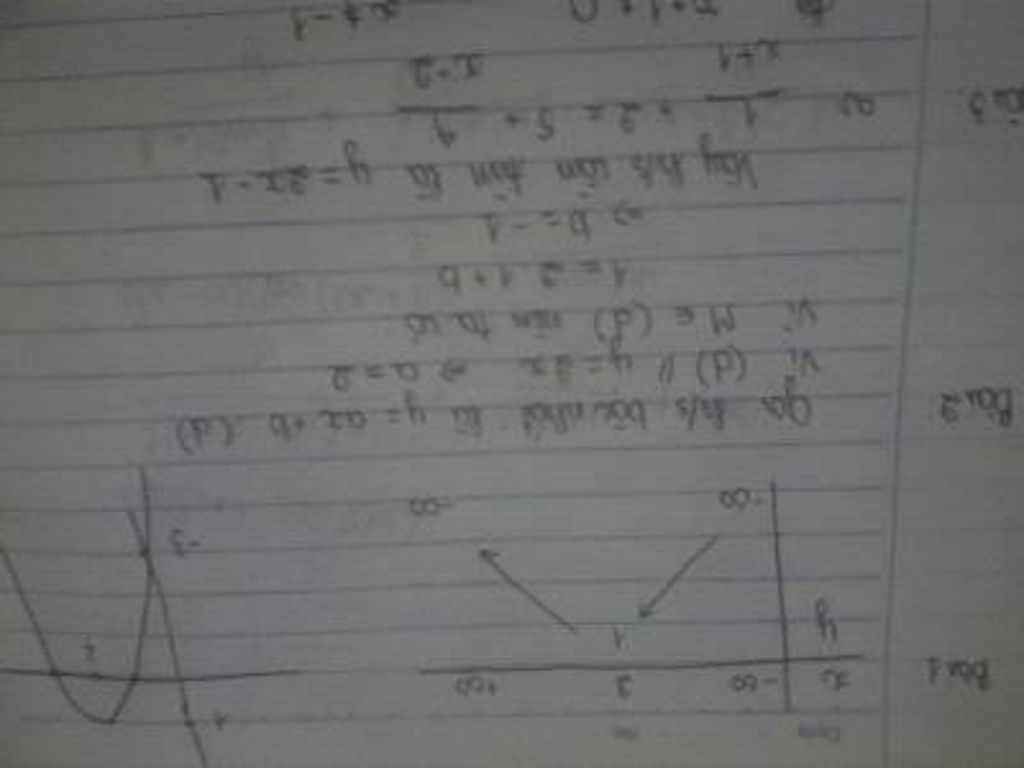 Bài 1
x -∞ 2 +∞
y 1
-∞ -∞
1
2
-3
Bài 2 Gọi h/s bậc nhất là y = ax + b (d)
Vì (d) // y = 2x ⇒ a = 2
Vì M ∈ (d) nên ta có
1 = 2.1 + b
⇒ b = -1
Vậy h/s cần tìm là y = 2x - 1
Bài 3 a, 1/(x+1) + 2 = 5 + 1/(x-2)
x + 1 ≠ 0 x ≠ -1